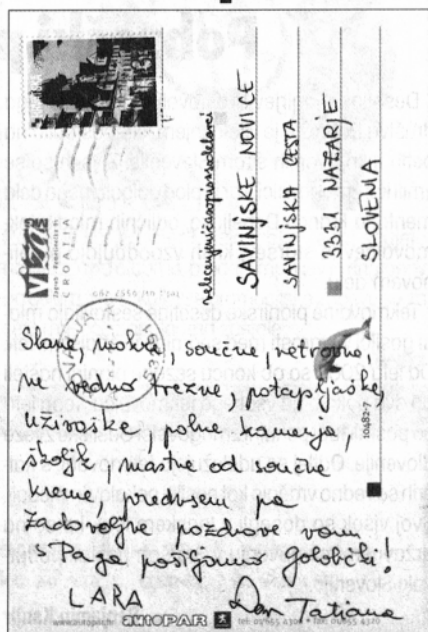 SAVINJSKE NOVICE
SAVINJSKA CESTA
3331 NAZARJE
SLOVENIA
VIZAS
CROATIA
Slane, mokre, sončne, vetrovne,
ne vedno trezne, potapljaške,
uživaške, polne kamenja,
školjk in mastne od sončne
kreme, predvsem pa
zadovoljne pozdrave vam
s Paga pošiljamo golobčki!
LARA
Dar Tatjana
autoPAR